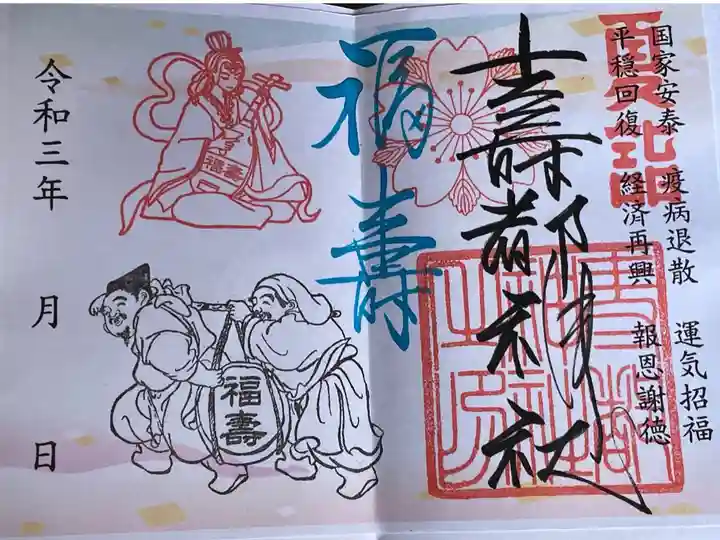 国家安泰 疫病退散 運気招福
平穏回復 経済再興 報恩謝徳
壽都神社
福壽
福壽
福壽
令和三年 月 日